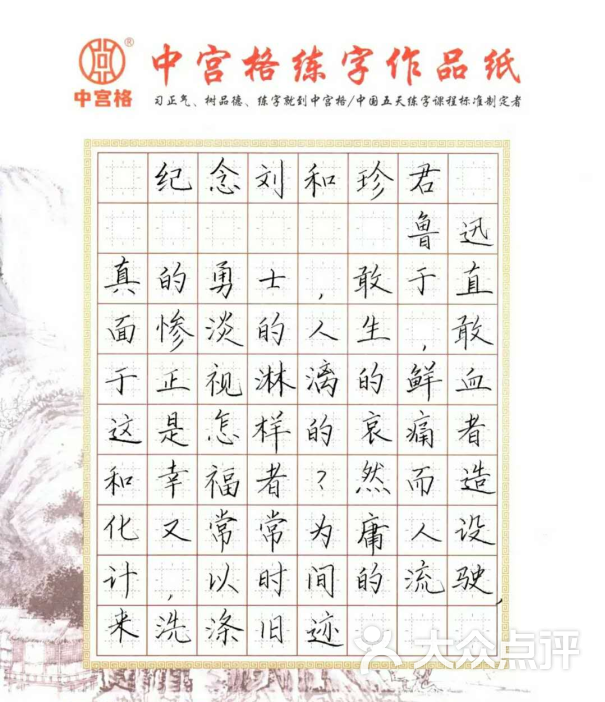 中宫格®
中宫格练字作品纸
习正气、树品德、练字就到中宫格/中国五天练字课程标准制定者
纪念刘和珍君
鲁迅
真的勇士，敢于直
面惨淡的人生，敢
于正视淋漓的鲜血
这是怎样的哀痛者
和幸福者？然而造
化又常常为庸人设
计，以时间的流驶，
来洗涤旧迹
大众点评